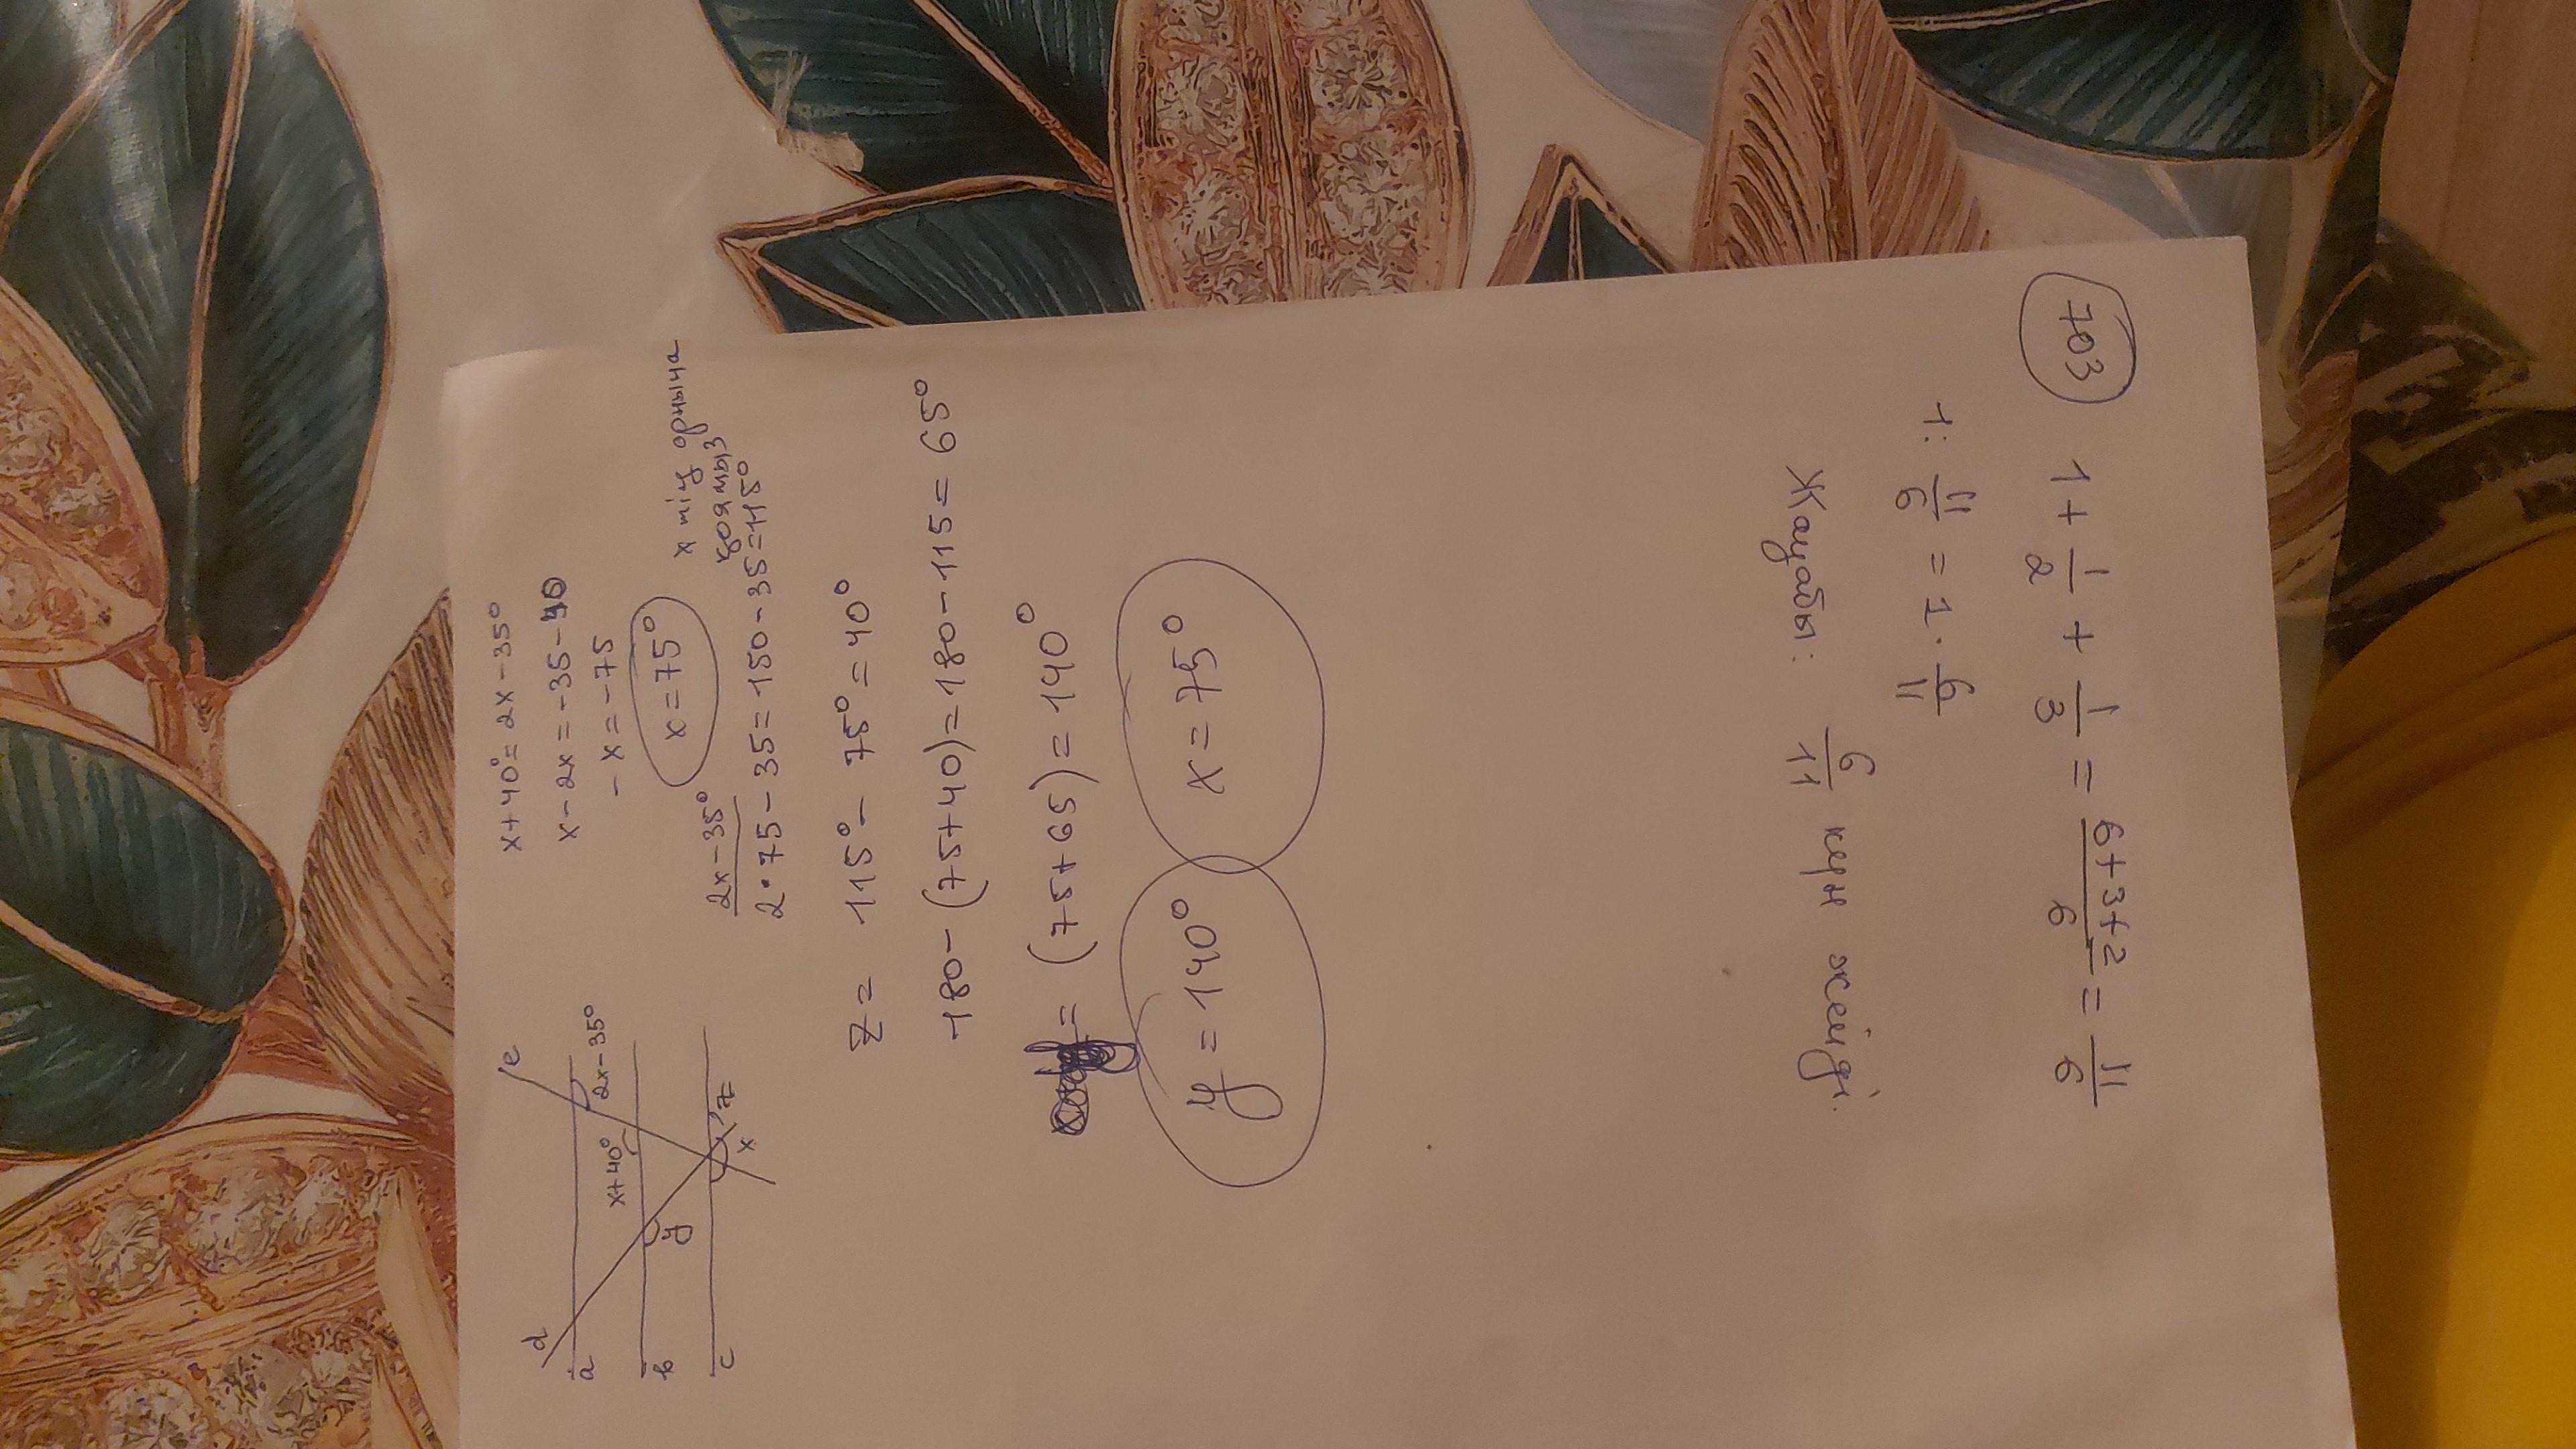 d
a
b
c
e
2x-35°
x+40°
y
z=
x
x+40°=2x-35°
x-2x=-35-40
-x=-75
x=75°
x тің орнына
қоямыз
2x-35°
2•75-35=150-35=115°
z= 115°- 75°=40°
180-(75+40)=180-115=65°
=(75+65)=140°
y=140°
x=75°
703
1+1/2+1/3=6+3+2/6=11/6
1:11/6=1·6/11
Жауабы: 6/11 күн жейді.